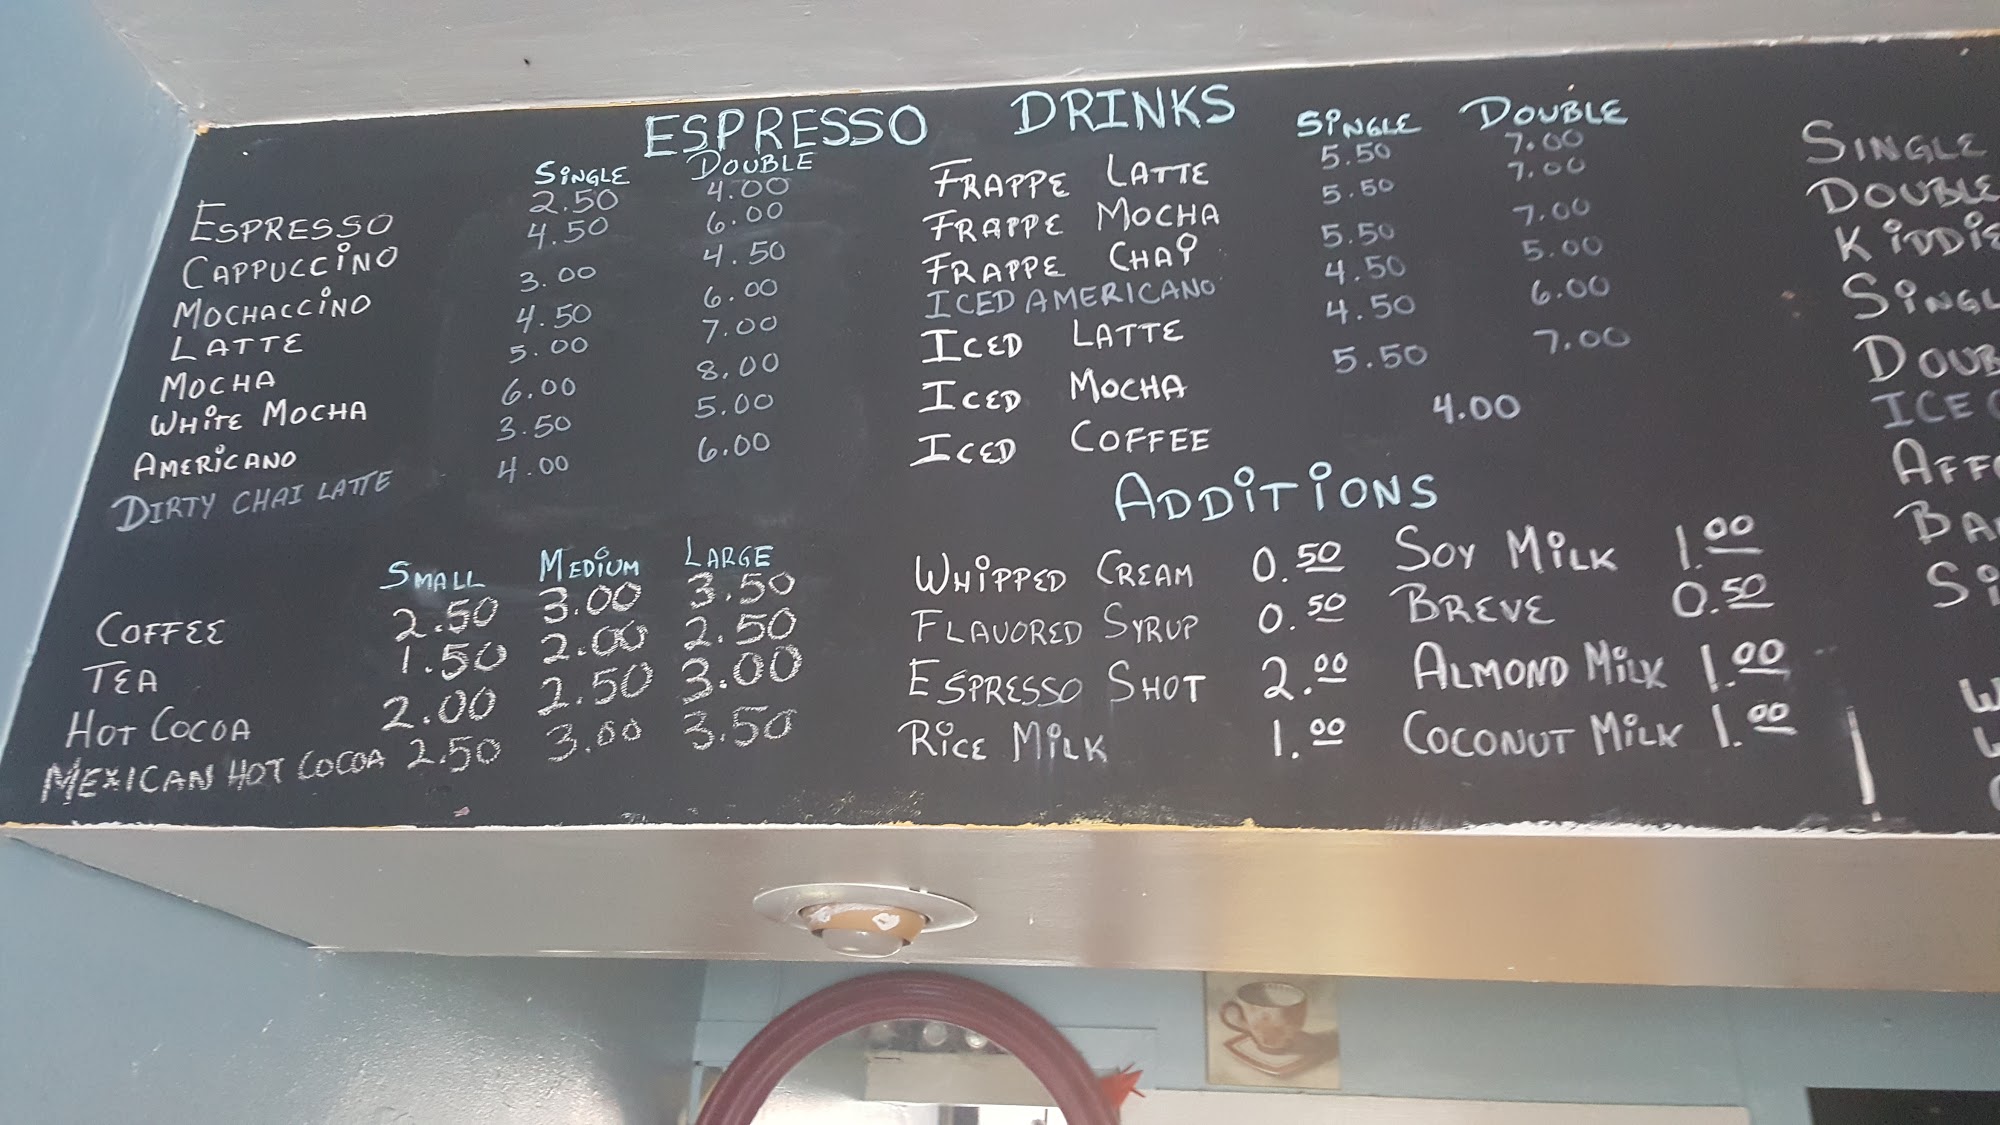 ESPRESSO DRINKS
SINGLE DOUBLE
ESPRESSO 2.50 4.00
CAPPUCCINO 4.50 6.00
MOCHACCINO 3.00 4.50
LATTE 4.50 6.00
MOCHA 5.00 7.00
WHITE MOCHA 6.00 8.00
AMERICANO 3.50 5.00
DIRTY CHAI LATTE 4.00 6.00
SMALL MEDIUM LARGE
COFFEE 2.50 3.00 3.50
TEA 1.50 2.00 2.50
HOT COCOA 2.00 2.50 3.00
MEXICAN HOT COCOA 2.50 3.00 3.50
SINGLE DOUBLE
FRAPPE LATTE 5.50 7.00
FRAPPE MOCHA 5.50 7.00
FRAPPE CHAI 5.50 7.00
ICED AMERICANO 4.50 5.00
ICED LATTE 4.50 6.00
ICED MOCHA 5.50 7.00
ICED COFFEE 4.00
ADDITIONS
WHIPPED CREAM 0.50 SOY MILK 1.00
FLAVORED SYRUP 0.50 BREVE 0.50
ESPRESSO SHOT 2.00 ALMOND MILK 1.00
RICE MILK 1.00 COCONUT MILK 1.00
SINGLE
DOUBLE
ICE